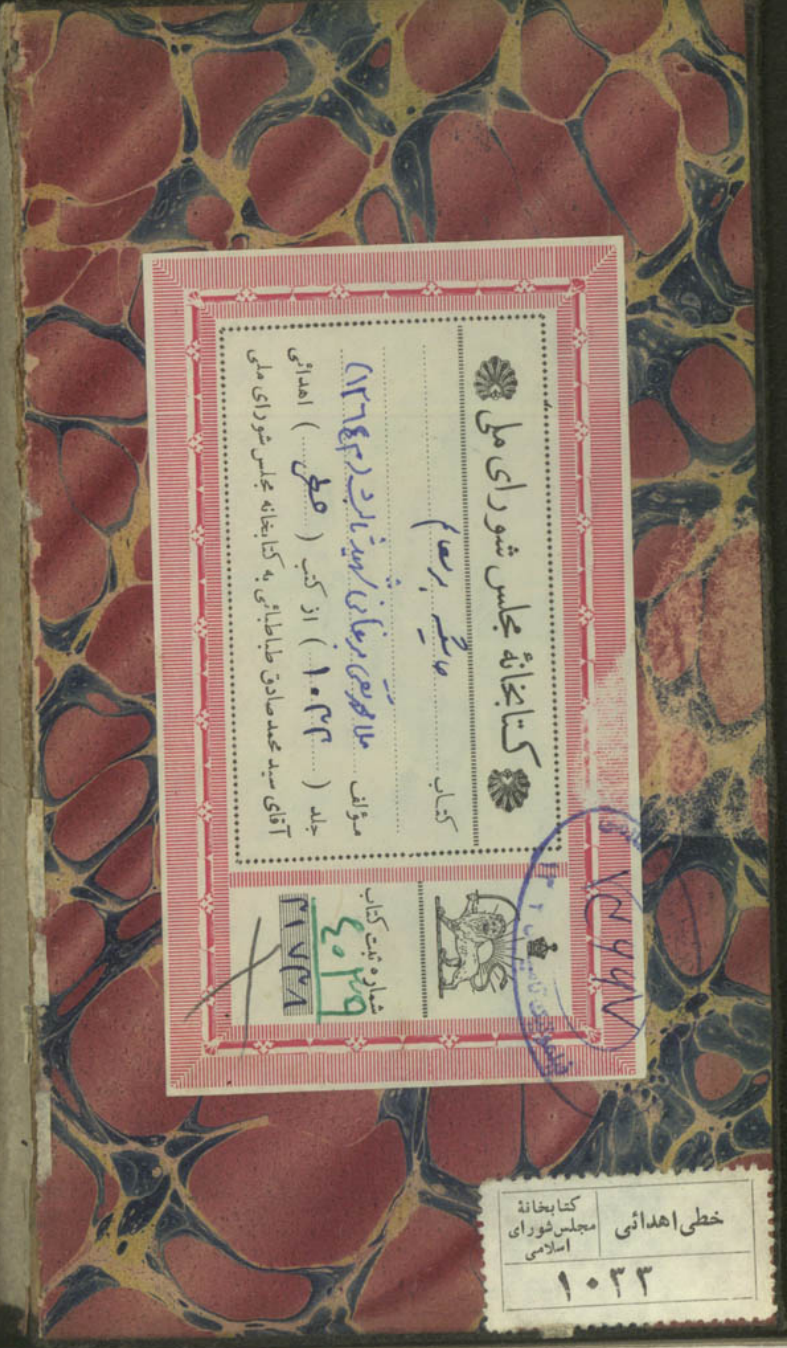 کتابخانهٔ مجلس شورای ملی
کتاب حاشیه بر معالم
مؤلف ملا محمد تقی برغانی شهید ثالث (م ۱۲۶۴)
جلد (۱۰۳۳) از کتب (خطی) اهدائی
آقای سید محمد صادق طباطبائی به کتابخانه مجلس شورای ملی
شماره ثبت کتاب
۴۰۳۹
۳۱۷۳۸
خطی اهدائی
کتابخانهٔ
مجلس شورای
اسلامی
۱۰۳۳